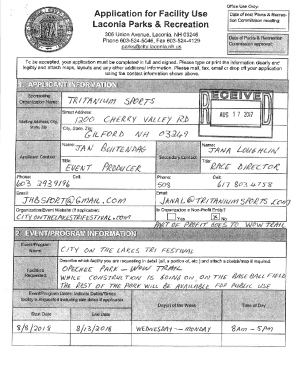 Application for Facility Use
Laconia Parks & Recreation
306 Union Avenue, Laconia, NH 03246
Phone 603-524-5046, Fax 603-524-4129
parks@city.laconia.nh.us
Office Use Only:
Date of next Parks & Recreation Commission meeting:
Date of Parks & Recreation Commission approval:
To be accepted, your application must be completed in full and signed. Please type or print the information clearly and
legibly and attach maps, layouts and any other additional information. Please mail, fax, email or drop off your application
using the contact information shown above.
1. APPLICANT INFORMATION
Sponsoring Organization Name: TRITANIUM SPORTS
RECEIVED
AUG 17 2017
Mailing Address City, State Zip
Street Address:
1200 CHERRY VALLEY RD
City, State, Zip:
GILFORD NH 03249
Applicant Contact
Name: JAN BUITENDAG
Title: EVENT PRODUCER
Secondary Contact
Name: JANA LOUGHLIN
Title: RACE DIRECTOR
Phone: 603 2939196
Cell:
Phone: 508
Cell: 617 803 4758
Email: JHBSPORT@GMAIL.COM
Email: JANAL@TRITANIUMSPORTS.COM
Organization/Event Website (if applicable):
CITYONTHELAKESTRIFESTIVAL.COM
Is Organization a Non-Profit Entity?
Yes No
PART OF PROFIT GOES TO WOW TRAIL
2. EVENT/PROGRAM INFORMATION
Event/Program Name: CITY ON THE LAKES TRI FESTIVAL
Facilities Requested:
Describe which facility you are requesting in detail (all, a portion of, etc) and attach a sketch/map if required.
OPECHEE PARK - WOW TRAIL
WHILE CONSTRUCTION IS GOING ON ON THE BASEBALL FIELD
THE REST OF THE PARK WILL BE AVAILABLE FOR PUBLIC USE
Event/Program Dates: Indicate Dates/Times
facility is requested including rain dates if applicable
Start Date End Date
Day(s) of the Week
Time of Day
8/8/2018 8/13/2018 WEDNESDAY - MONDAY 8AM - 5PM